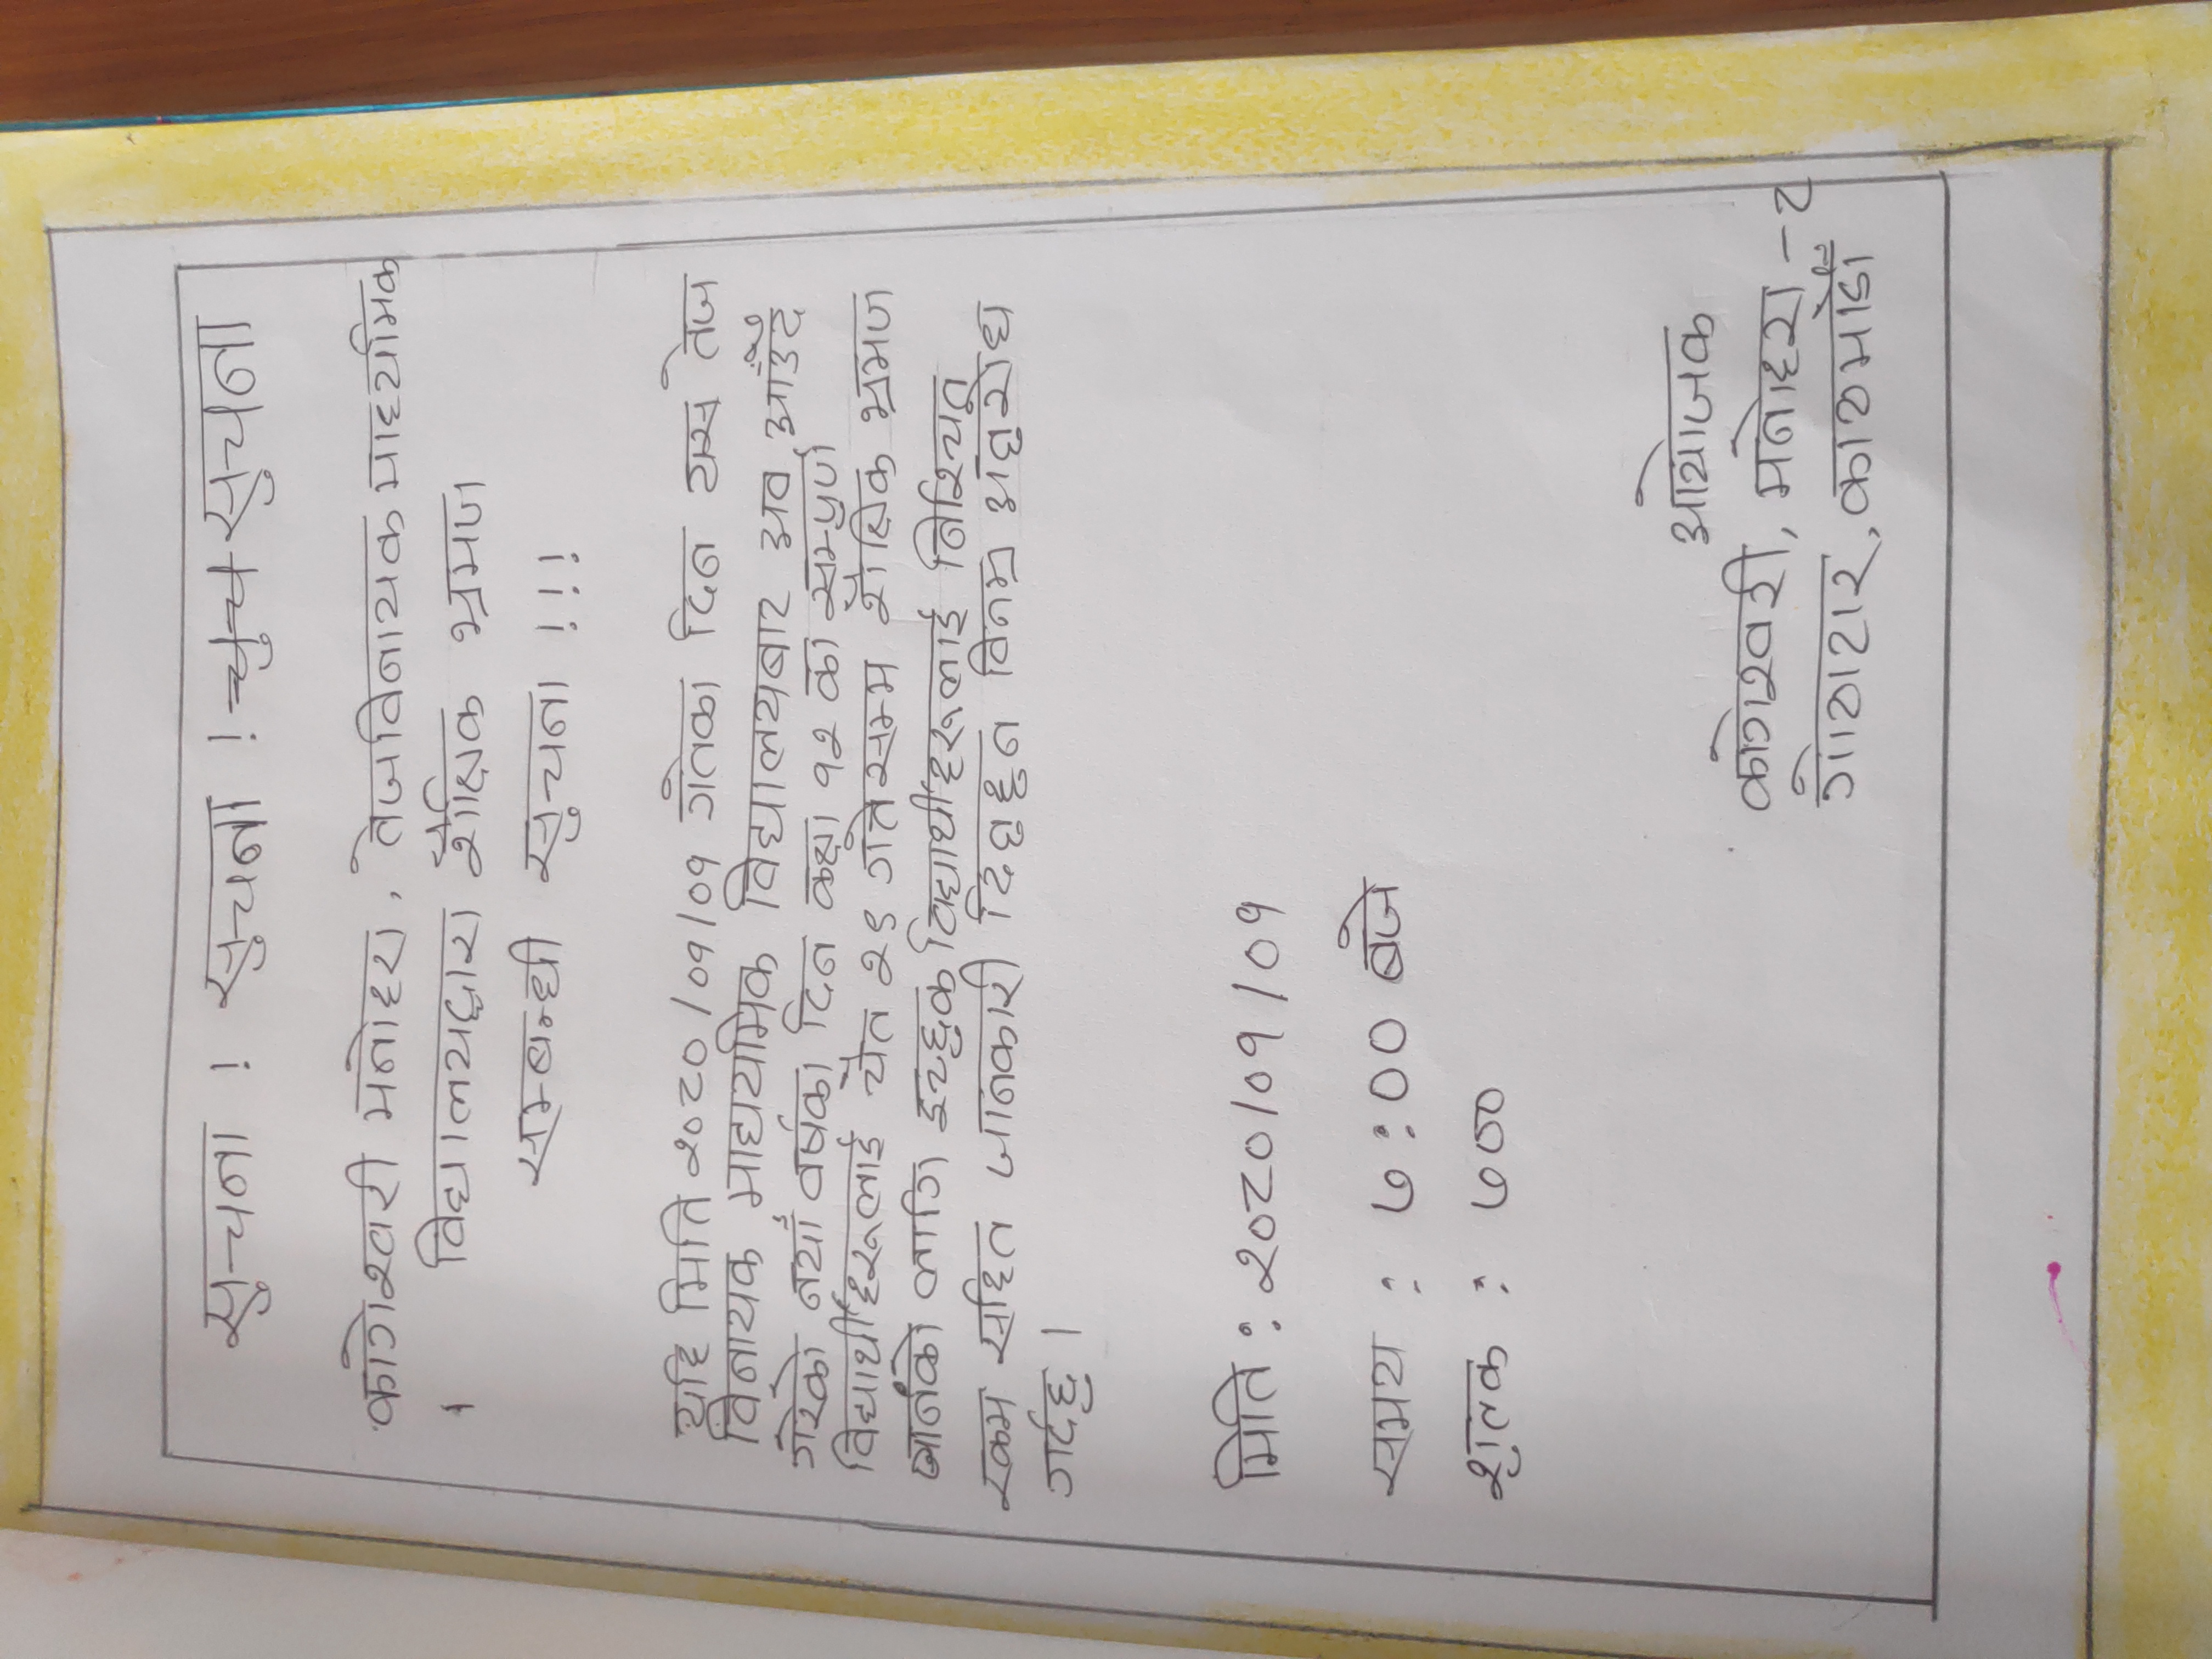 सुचना ! सुचना ! सुचना
कागेश्वरी मनोहरा, तेजविनायक माध्यमिक
विद्यालयद्वारा शैक्षिक भ्रमण
सम्बन्धी सुचना !!!
यहि मिति २०८०/०१/०१ गतेका दिन यस तेज
विनायक माध्ययमिक विद्यालयबाट अब आँउदै
गरेको नयाँ वर्षका दिन कक्षा १२ का सम्पुर्ण
विद्यार्थीहरूलाई चैत २९ गतेसम्म शैक्षिक भ्रमण
जानको लागि इच्छुक विद्यार्थीहरूलाई निश्चित
रकम सहित जानकारी दिनुहुन विनम्र अनुरोध
गर्दछु ।
मिति : २०८०/०१/०१
समय : ७:०० बजे
शुल्क : ७००
आयोजक
कागेश्वरी, मनोहरा -८
गोठाटार, काठमाडौँ